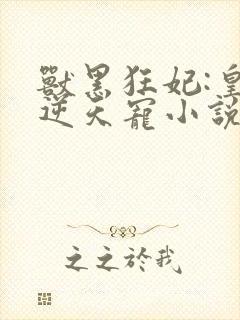 獸黑狂妃:皇
逆天寵小說
之之於我